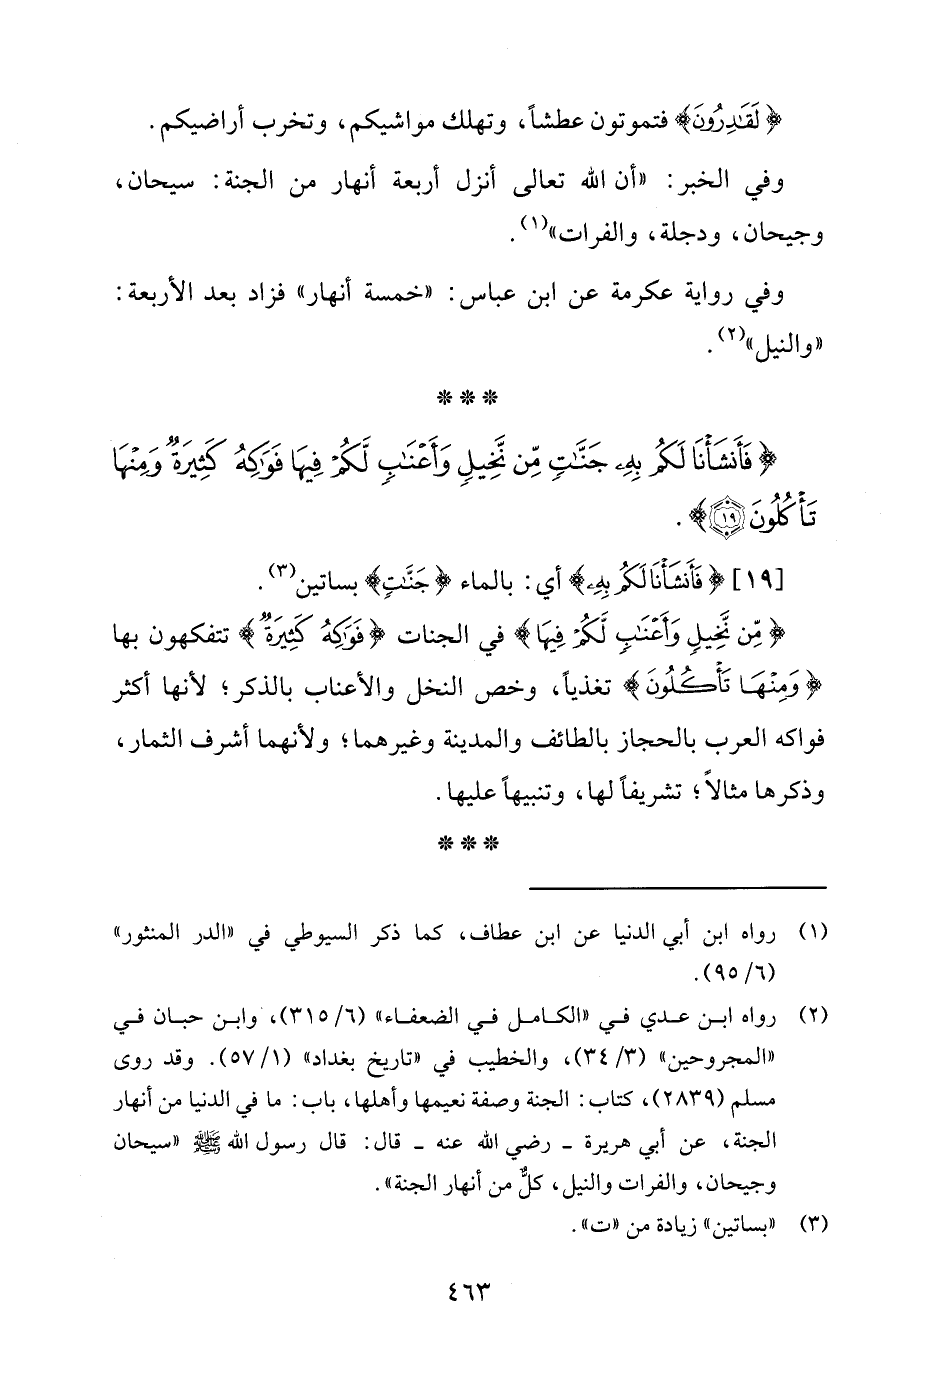 ﴿لَقَٰدِرُونَ﴾ فتموتون عطشاً، وتهلك مواشيكم، وتخرب أراضيكم.
وفي الخبر: «أن الله تعالى أنزل أربعة أنهار من الجنة: سيحان،
وجيحان، ودجلة، والفرات»(١).
وفي رواية عكرمة عن ابن عباس: «خمسة أنهار» فزاد بعد الأربعة:
«والنيل»(٢).
* * *
﴿فَأَنشَأْنَا لَكُم بِهِۦ جَنَّٰتٍ مِّن نَّخِيلٍ وَأَعْنَٰبٍ لَّكُمْ فِيهَا فَوَٰكِهُ كَثِيرَةٌ وَمِنْهَا
تَأْكُلُونَ ١٩﴾.
[١٩] ﴿فَأَنشَأْنَا لَكُم بِهِۦ﴾ أي: بالماء ﴿جَنَّٰتٍ﴾ بساتين(٣).
﴿مِّن نَّخِيلٍ وَأَعْنَٰبٍ لَّكُمْ فِيهَا﴾ في الجنات ﴿فَوَٰكِهُ كَثِيرَةٌ﴾ تتفكهون بها
﴿وَمِنْهَا تَأْكُلُونَ﴾ تغذياً، وخص النخل والأعناب بالذكر؛ لأنها أكثر
فواكه العرب بالحجاز بالطائف والمدينة وغيرهما؛ ولأنهما أشرف الثمار،
وذكرها مثالاً؛ تشريفاً لها، وتنبيهاً عليها.
* * *
(١) رواه ابن أبي الدنيا عن ابن عطاف، كما ذكر السيوطي في «الدر المنثور»
(٦/ ٩٥).
(٢) رواه ابن عدي في «الكامل في الضعفاء» (٦/ ٣١٥)، وابن حبان في
«المجروحين» (٣/ ٣٤)، والخطيب في «تاريخ بغداد» (١/ ٥٧). وقد روى
مسلم (٢٨٣٩)، كتاب: الجنة وصفة نعيمها وأهلها، باب: ما في الدنيا من أنهار
الجنة، عن أبي هريرة ـ رضي الله عنه ـ قال: قال رسول الله ﷺ «سيحان
وجيحان، والفرات والنيل، كلٌّ من أنهار الجنة».
(٣) «بساتين» زيادة من «ت».
٤٦٣